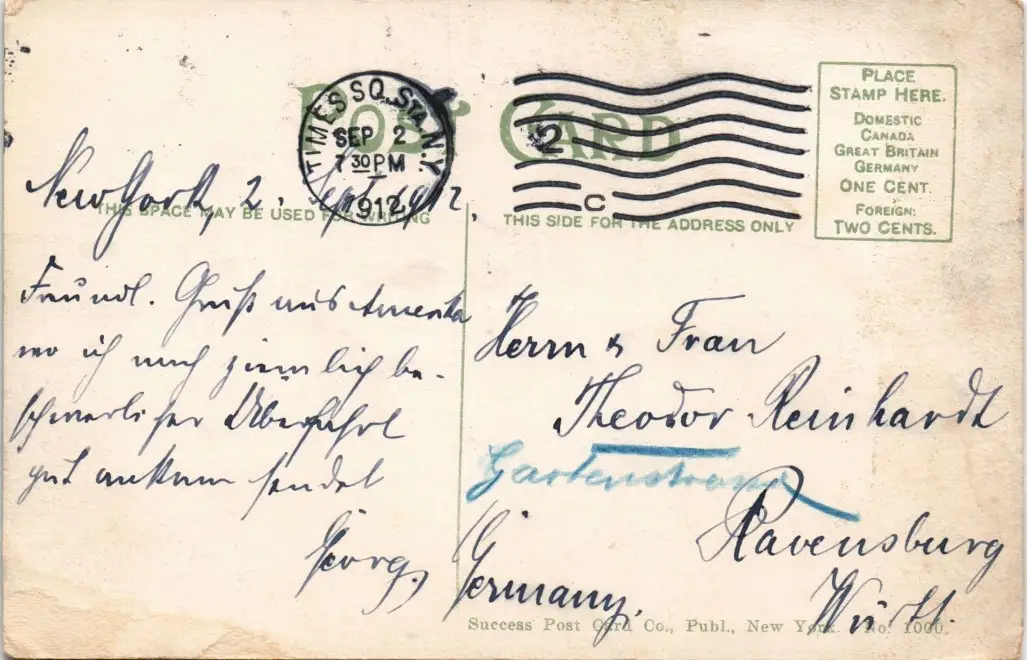 POST CARD
TIMES SQ. STA. N.Y.
SEP 2
7 30 PM
1912
2
C
PLACE
STAMP HERE.
DOMESTIC
CANADA
GREAT BRITAIN
GERMANY
ONE CENT.
FOREIGN:
TWO CENTS.
THIS SPACE MAY BE USED FOR WRITING
THIS SIDE FOR THE ADDRESS ONLY
New York, 2. Sept. 1912.
Freundl. Gruß aus Amerika
wo ich nach ziemlich be-
schwerlicher Überfahrt
gut ankam sendet
Georg.
Herrn & Frau
Theodor Reinhardt
Gartenstrasse
Ravensburg
Württ.
Germany.
Success Post Card Co., Publ., New York. No. 1000.